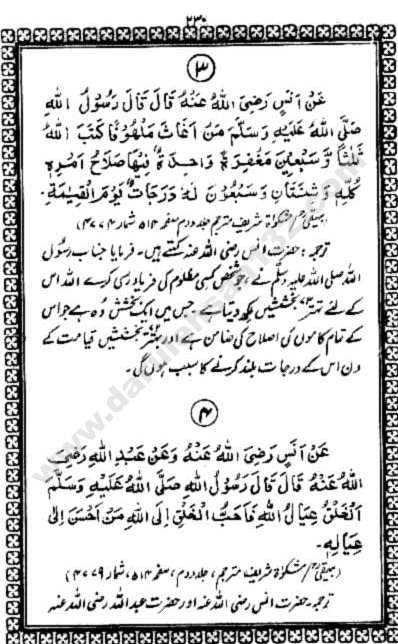 ۲۳۰
۳
عَنْ اَنَسٍ رَضِىَ اللهُ عَنْهُ قَالَ قَالَ رَسُوْلُ اللهِ
صَلَّى اللهُ عَلَيْهِ وَسَلَّمَ مَنْ اَغَاثَ مَلْهُوْفًا كَتَبَ اللهُ
ثَلٰثًا وَّسَبْعِيْنَ مَغْفِرَةً وَاحِدَةٌ فِيْهَا صَلَاحُ اَمْرِهٖ
كُلِّهٖ وَثِنْتَانِ وَسَبْعُوْنَ لَهٗ دَرَجَاتٌ يَوْمَ الْقِيٰمَةِ۔
(بیہقی، مشکوٰۃ شریف مترجم جلد دوم صفحہ ۵۱۴ شمار ۴۷۷۴)
ترجمہ: حضرت انس رضی اللہ عنہ کہتے ہیں۔ فرمایا جناب رسول
اللہ صلی اللہ علیہ وسلم نے، جو شخص کسی مظلوم کی فریاد رسی کرے اللہ اس
کے لئے تہتر ۷۳ بخششیں لکھ دیتا ہے۔ جس میں ایک بخشش وہ ہے جو اس
کے تمام کاموں کی اصلاح کی ضامن ہے اور بہتر بخششیں قیامت کے
دن اس کے درجات بلند کرنے کا سبب ہوں گی۔
۴
عَنْ اَنَسٍ رَضِىَ اللهُ عَنْهُ وَعَنْ عَبْدِ اللهِ رَضِىَ
اللهُ عَنْهُ قَالَ قَالَ رَسُوْلُ اللهِ صَلَّى اللهُ عَلَيْهِ وَسَلَّمَ
اَلْخَلْقُ عِيَالُ اللهِ فَاَحَبُّ الْخَلْقِ اِلَى اللهِ مَنْ اَحْسَنَ اِلٰى
عِيَالِهٖ۔
(بیہقی، مشکوٰۃ شریف مترجم، جلد دوم، صفحہ ۵۱۴، شمار ۴۷۷۹)
ترجمہ۔ حضرت انس رضی اللہ عنہ اور حضرت عبد اللہ رضی اللہ عنہ